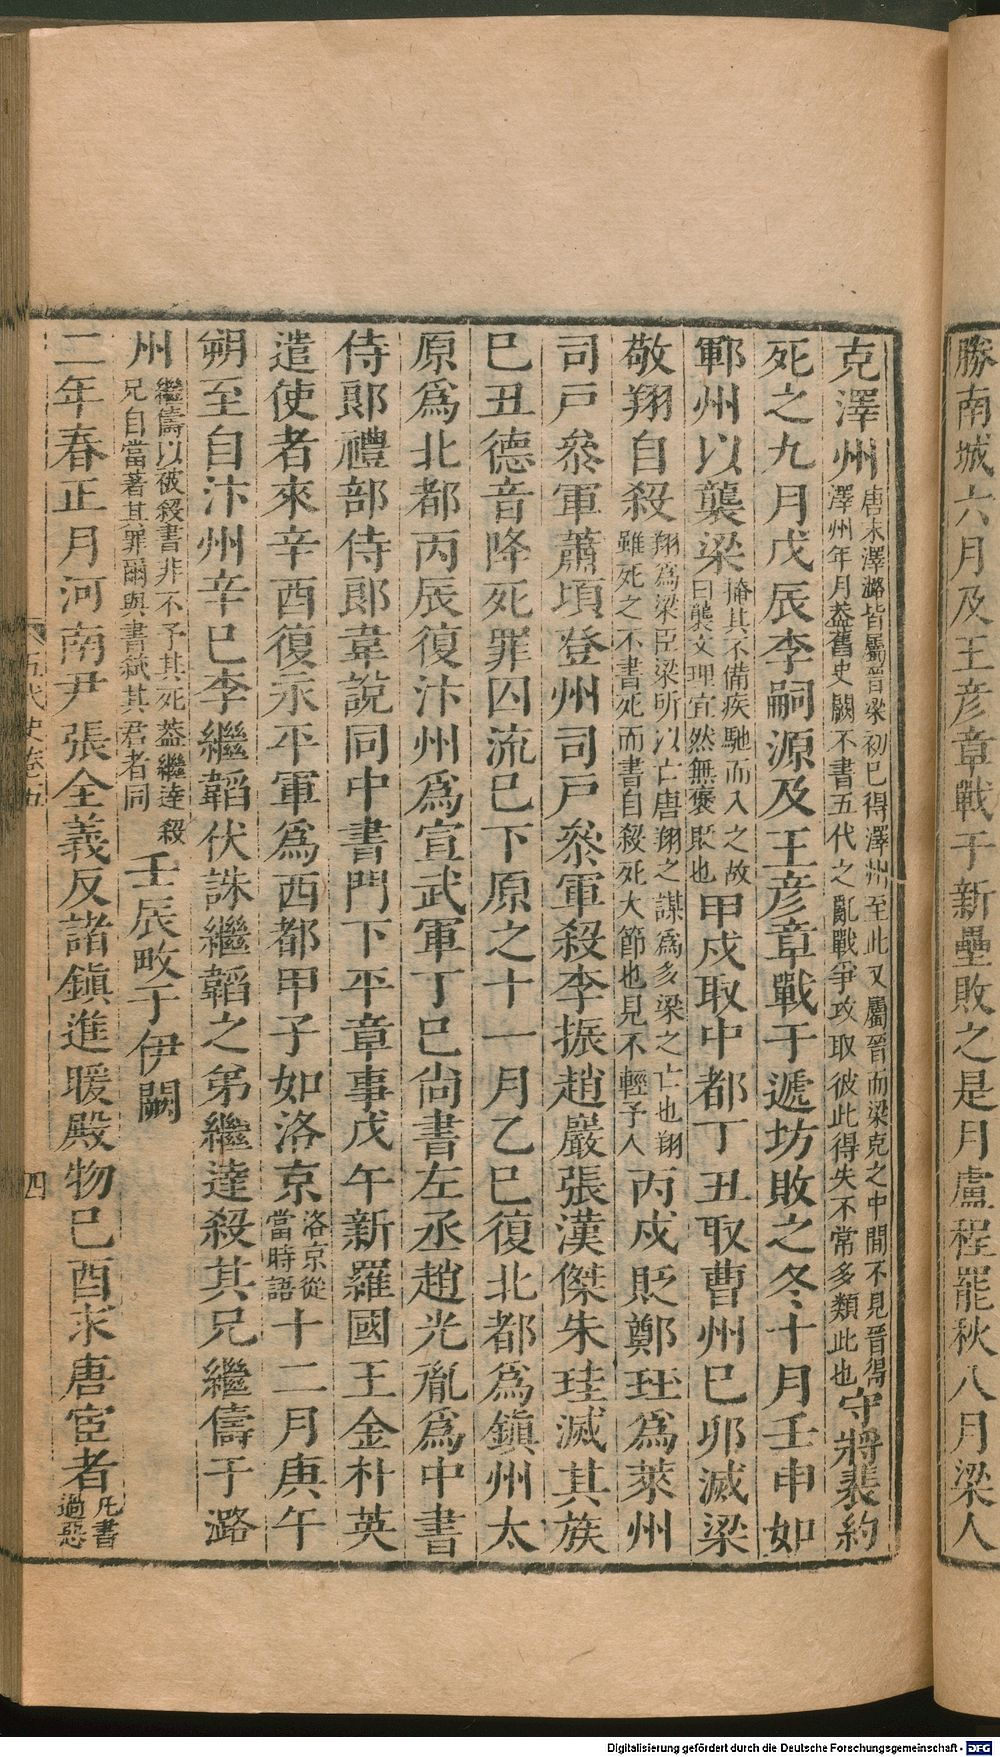 勝南城六月及王彥章戰于新壘敗之是月盧程罷秋八月梁人
克澤州唐末澤潞皆屬晉梁初已得澤州至此又屬晉而梁克之中間不見晉得澤州年月葢舊史闕不書五代之亂戰爭攻取彼此得失不常多類此也守將裴約
死之九月戊辰李嗣源及王彥章戰于遞坊敗之冬十月壬申如
鄆州以襲梁掩其不備疾馳而入之故曰襲文理宜然無襃貶也甲戌取中都丁丑取曹州巳卯滅梁
敬翔自殺翔為梁臣梁所以亡唐翔之謀為多梁之亡也翔雖死之不書死而書自殺死大節也見不輕予人丙戌貶鄭珏為萊州
司戸叅軍蕭頃登州司戸叅軍殺李振趙巖張漢傑朱珪滅其族
巳丑德音降死罪囚流巳下原之十一月乙巳復北都爲鎮州太
原爲北都丙辰復汴州爲宣武軍丁巳尚書左丞趙光胤爲中書
侍郞禮部侍郞韋說同中書門下平章事戊午新羅國王金朴英
遣使者來辛酉復永平軍爲西都甲子如洛京洛京從當時語十二月庚午
朔至自汴州辛巳李繼韜伏誅繼韜之弟繼逹殺其兄繼儔于潞
州繼儔以彼殺書非不予其死葢繼逹殺兄自當著其罪爾與書弒其君者同壬辰畋于伊闕
二年春正月河南尹張全義反諸鎮進暖殿物巳酉求唐宦者凡書過惡
五代史卷五
四
Digitalisierung gefördert durch die Deutsche Forschungsgemeinschaft - DFG